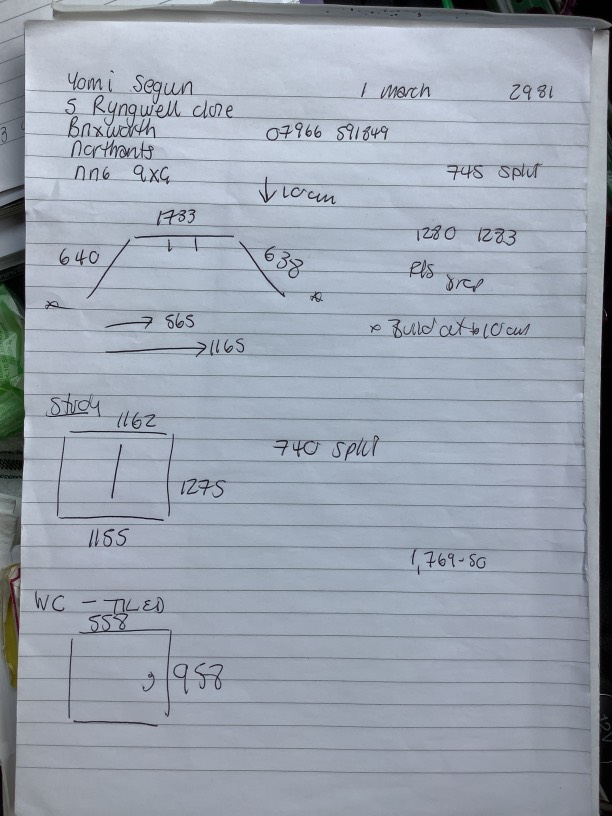 Yomi Segun 1 March 2981
5 Ryngwell close
Brixworth 07966 591849
Northants
NN6 9XG 745 split
↓ 10cm
1733
640 638 1280 1283
R/S
* * * Build out 10cm
→ 565
→ 1165
Study
1162
740 split
1275
1155
1,769-50
WC - TILED
558
958